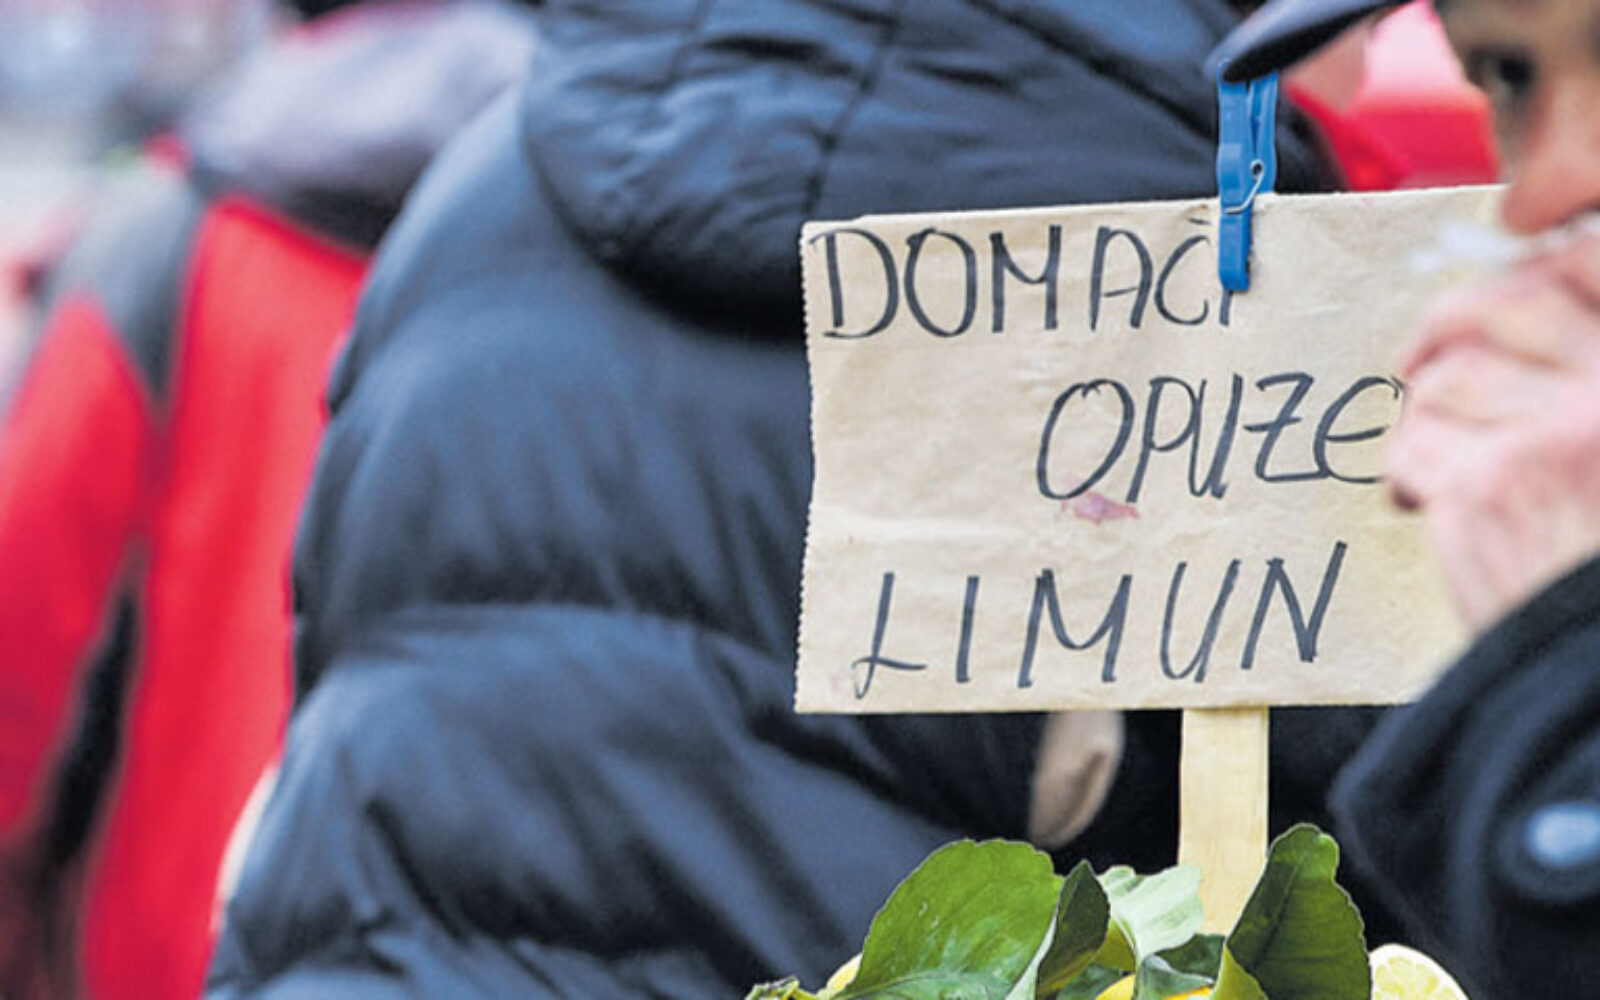 DOMAĆI
OPUZE
LIMUN